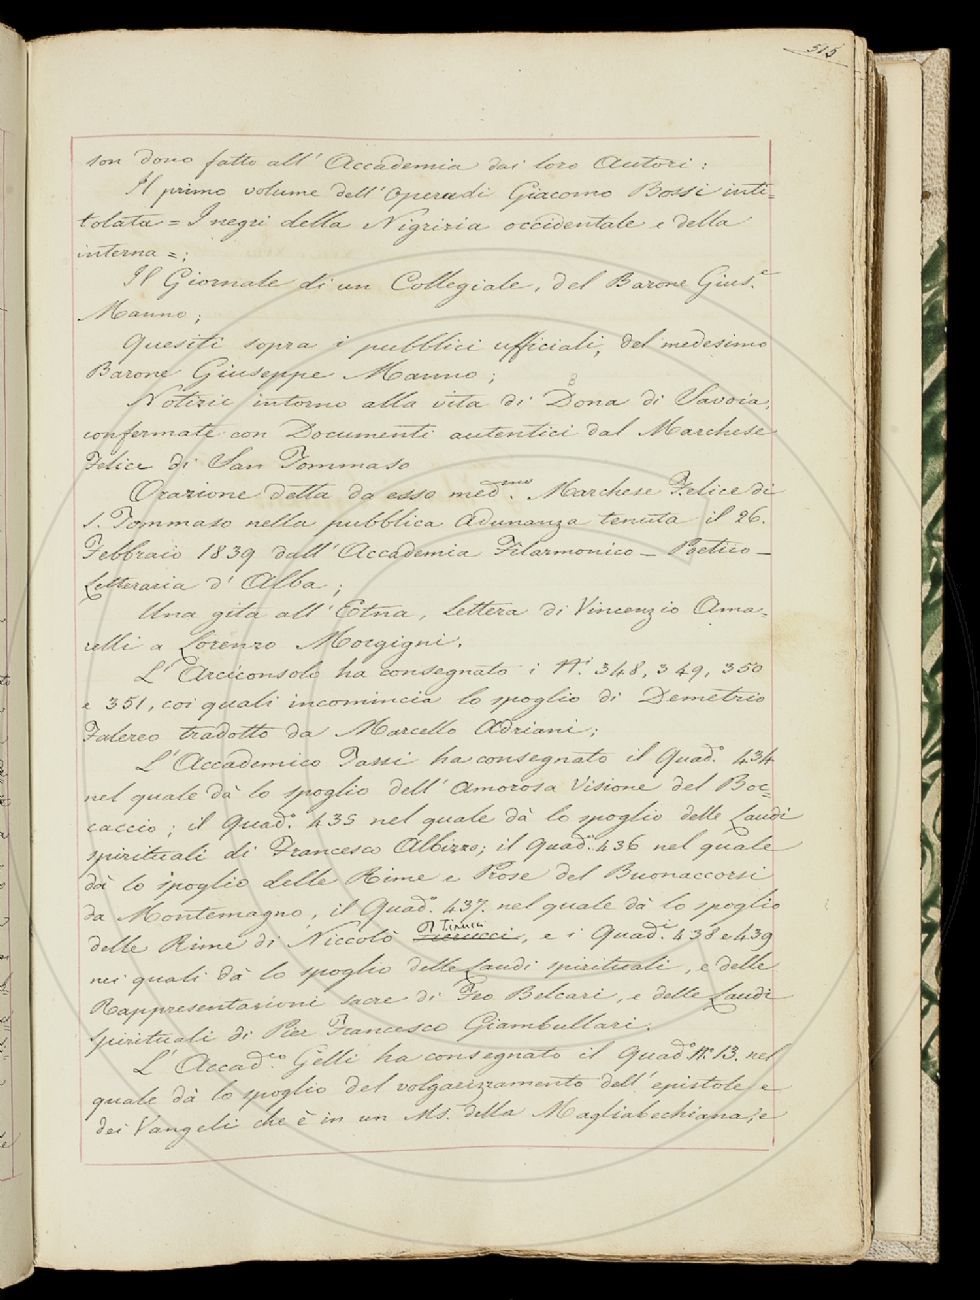 515
son dono fatto all' Accademia dai loro Autori:
Il primo volume dell'Opera di Giacomo Bossi inti=
tolata = I negri della Nigrizia occidentale e della
interna =;
Il Giornale di un Collegiale, del Barone Gius.e
Manno;
Quesiti sopra i pubblici ufficiali, del medesimo
Barone Giuseppe Manno;
Notizie intorno alla vita di Bona di Savoia,
confermate con Documenti autentici dal Marchese
Felice di San Tommaso
Orazione detta da esso med.smo Marchese Felice di
S. Tommaso nella pubblica adunanza tenuta il 26.
Febbraio 1839 dall'Accademia Filarmonico - Poetico -
Letteraria d'Alba;
Una gita all'Etna, lettera di Vincenzio Ama=
relli a Lorenzo Morgigni.
L'Arciconsolo ha consegnato i N.i 348, 349, 350
e 351, coi quali incomincia lo spoglio di Demetrio
Falereo tradotto da Marcello Adriani;
L'Accademico Tassi ha consegnato il Quad.o 434
nel quale dà lo spoglio dell'Amorosa Visione del Boc=
caccio; il Quad.o 435 nel quale dà lo spoglio delle Laudi
spirituali di Francesco Albizzo; il Quad.o 436 nel quale
dà lo spoglio delle Rime e Prose del Buonaccorsi
da Montemagno, il Quad.o 437. nel quale dà lo spoglio
delle Rime di Niccolò Tinucci, e i Quad.i 438 e 439
nei quali dà lo spoglio delle Laudi spirituali, e delle
Rappresentazioni sacre di Feo Belcari, e delle Laudi
spirituali di Pier Francesco Giambullari.
L'Accad.co Gelli ha consegnato il Quad.o N.o 13. nel
quale dà lo spoglio del volgarizzamento dell'epistole e
dei Vangeli che è in un Ms. della Magliabechiana; e